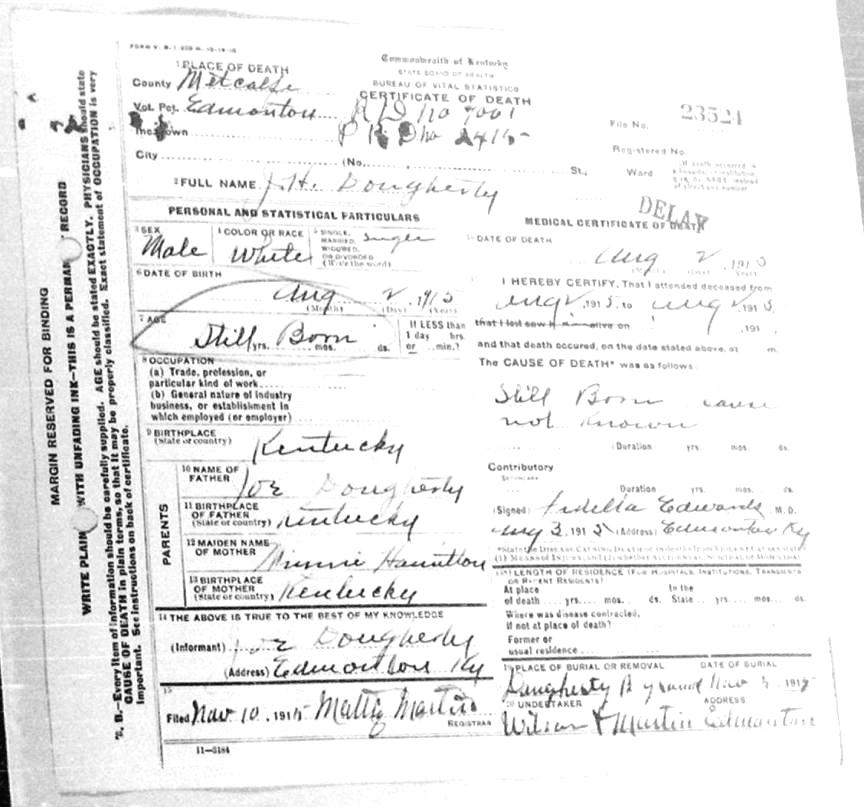 FORM V. S. 1-
1 PLACE OF DEATH
County Metcalfe
Vot. Pct. Edmonton
Inc. Town
City (No. St., Ward
Commonwealth of Kentucky
STATE BOARD OF HEALTH
BUREAU OF VITAL STATISTICS
CERTIFICATE OF DEATH
R D no 7001
P R D no 2415
File No. 23524
Registered No.
(If death occurred in
a hospital or institution,
give its NAME instead
of street and number.)
2 FULL NAME J. H. Dougherty
DELAY
PERSONAL AND STATISTICAL PARTICULARS
3 SEX
Male
4 COLOR OR RACE
White
5 SINGLE,
MARRIED,
WIDOWED,
OR DIVORCED
(Write the word)
Single
6 DATE OF BIRTH
Aug 2 1915
(Month) (Day) (Year)
7 AGE
Still Born
yrs. mos. ds.
If LESS than
1 day hrs.
or min.?
8 OCCUPATION
(a) Trade, profession, or
particular kind of work
(b) General nature of industry
business, or establishment in
which employed (or employer)
9 BIRTHPLACE
(State or country)
Kentucky
PARENTS
10 NAME OF
FATHER
Joe Dougherty
11 BIRTHPLACE
OF FATHER
(State or country)
Kentucky
12 MAIDEN NAME
OF MOTHER
Minnie Hamilton
13 BIRTHPLACE
OF MOTHER
(State or country)
Kentucky
14 THE ABOVE IS TRUE TO THE BEST OF MY KNOWLEDGE
(Informant) Joe Dougherty
(Address) Edmonton Ky
15
Filed Nov 10, 1915 Matty Martin
REGISTRAR
11-3184
MEDICAL CERTIFICATE OF DEATH
16 DATE OF DEATH
Aug 2, 1915
I HEREBY CERTIFY, That I attended deceased from
Aug 2, 1915, to Aug 2, 1915,
that I last saw h alive on , 191 ,
and that death occured, on the date stated above, at m.
The CAUSE OF DEATH* was as follows:
Still Born cause
not known
(Duration yrs. mos. ds.
Contributory
SECONDARY
Duration yrs. mos. ds.
(Signed) Fidella Edwards, M. D.
Aug 3, 1915 (Address) Edmonton Ky
18 LENGTH OF RESIDENCE (FOR HOSPITALS, INSTITUTIONS, TRANSIENTS
OR RECENT RESIDENTS)
At place In the
of death yrs. mos. ds. State yrs. mos. ds.
Where was disease contracted,
if not at place of death?
Former or
usual residence
19 PLACE OF BURIAL OR REMOVAL DATE OF BURIAL
Dougherty B ground Nov 3, 1915
20 UNDERTAKER ADDRESS
Wilson & Martin Edmonton
MARGIN RESERVED FOR BINDING
WRITE PLAIN WITH UNFADING INK—THIS IS A PERMA RECORD
N. B.—Every item of information should be carefully supplied. AGE should be stated EXACTLY. PHYSICIANS should state
CAUSE OF DEATH in plain terms, so that it may be properly classified. Exact statement of OCCUPATION is very
important. See instructions on back of certificate.